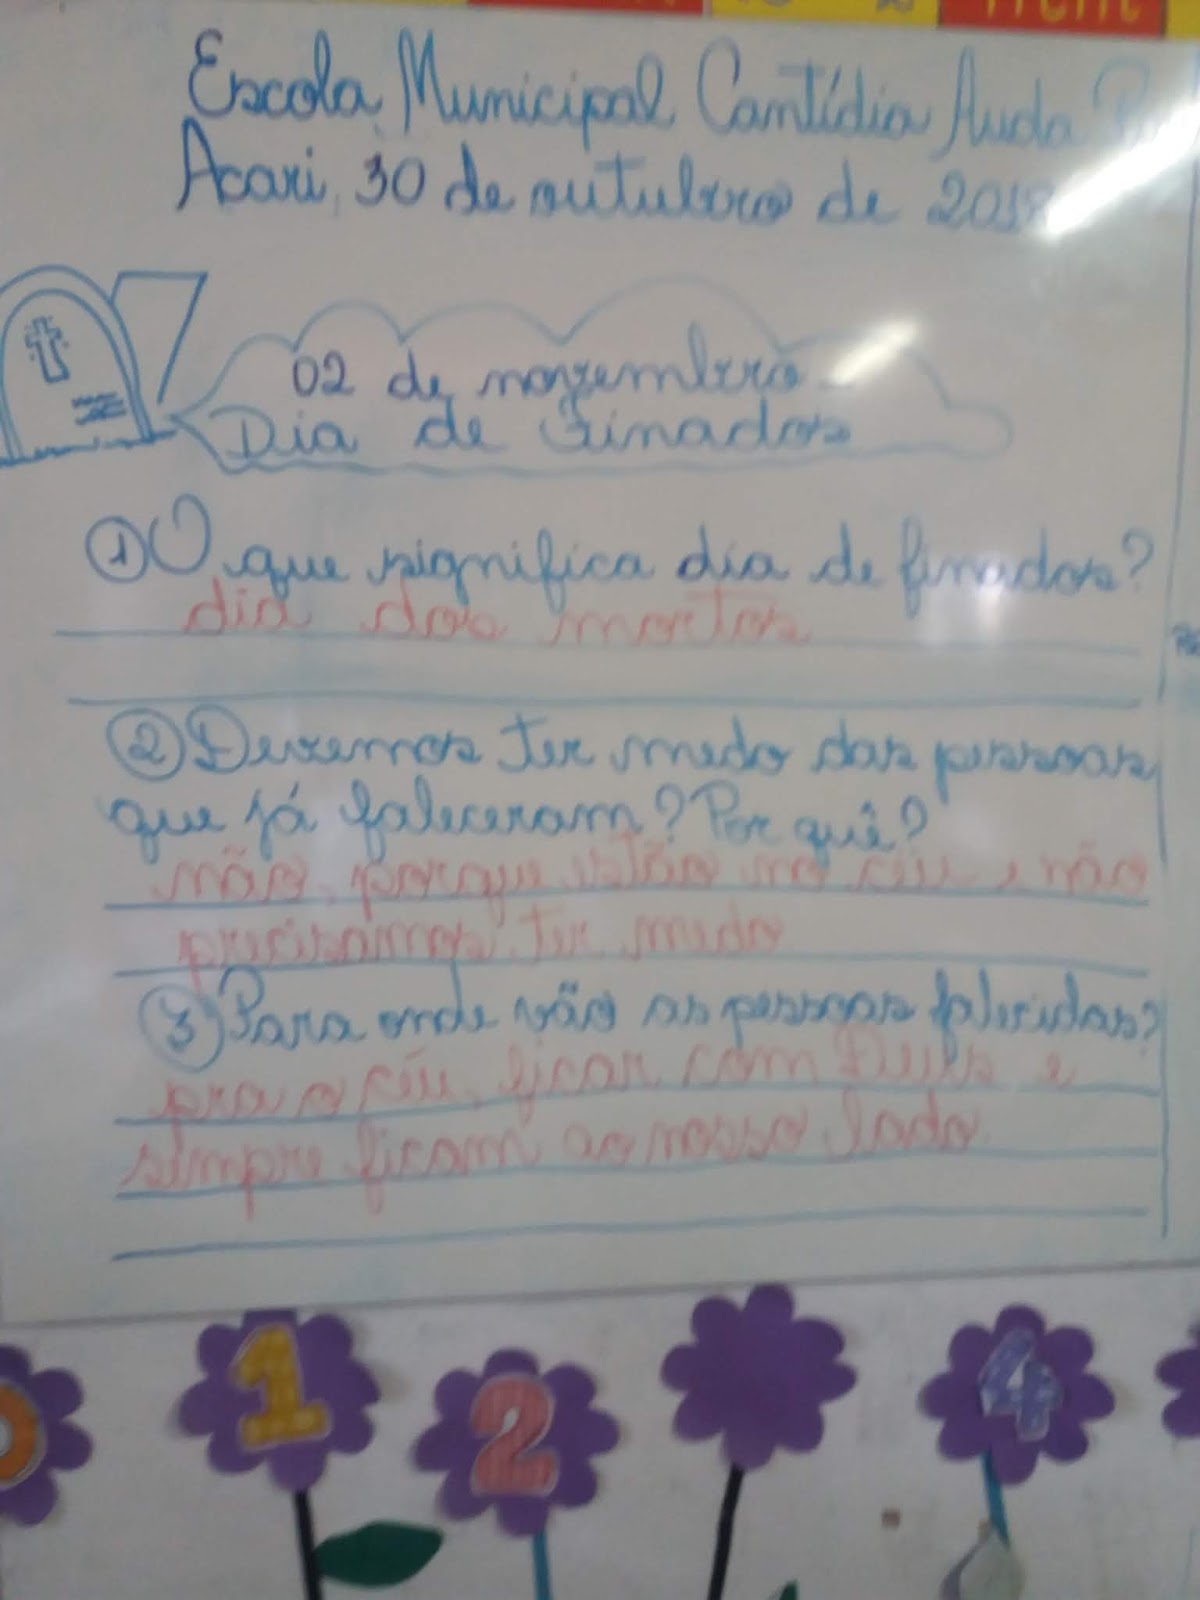 Escola Municipal Cantídia Auda
Acari, 30 de outubro de
02 de novembro
Dia de Finados
1 O que significa dia de finados?
dia dos mortos
2 Devemos ter medo das pessoas
que já faleceram? Por quê?
não, porque estão no céu e não
precisamos ter medo
3 Para onde vão as pessoas falecidas?
pra o céu, ficar com Deus e
sempre ficam ao nosso lado
1 2 4